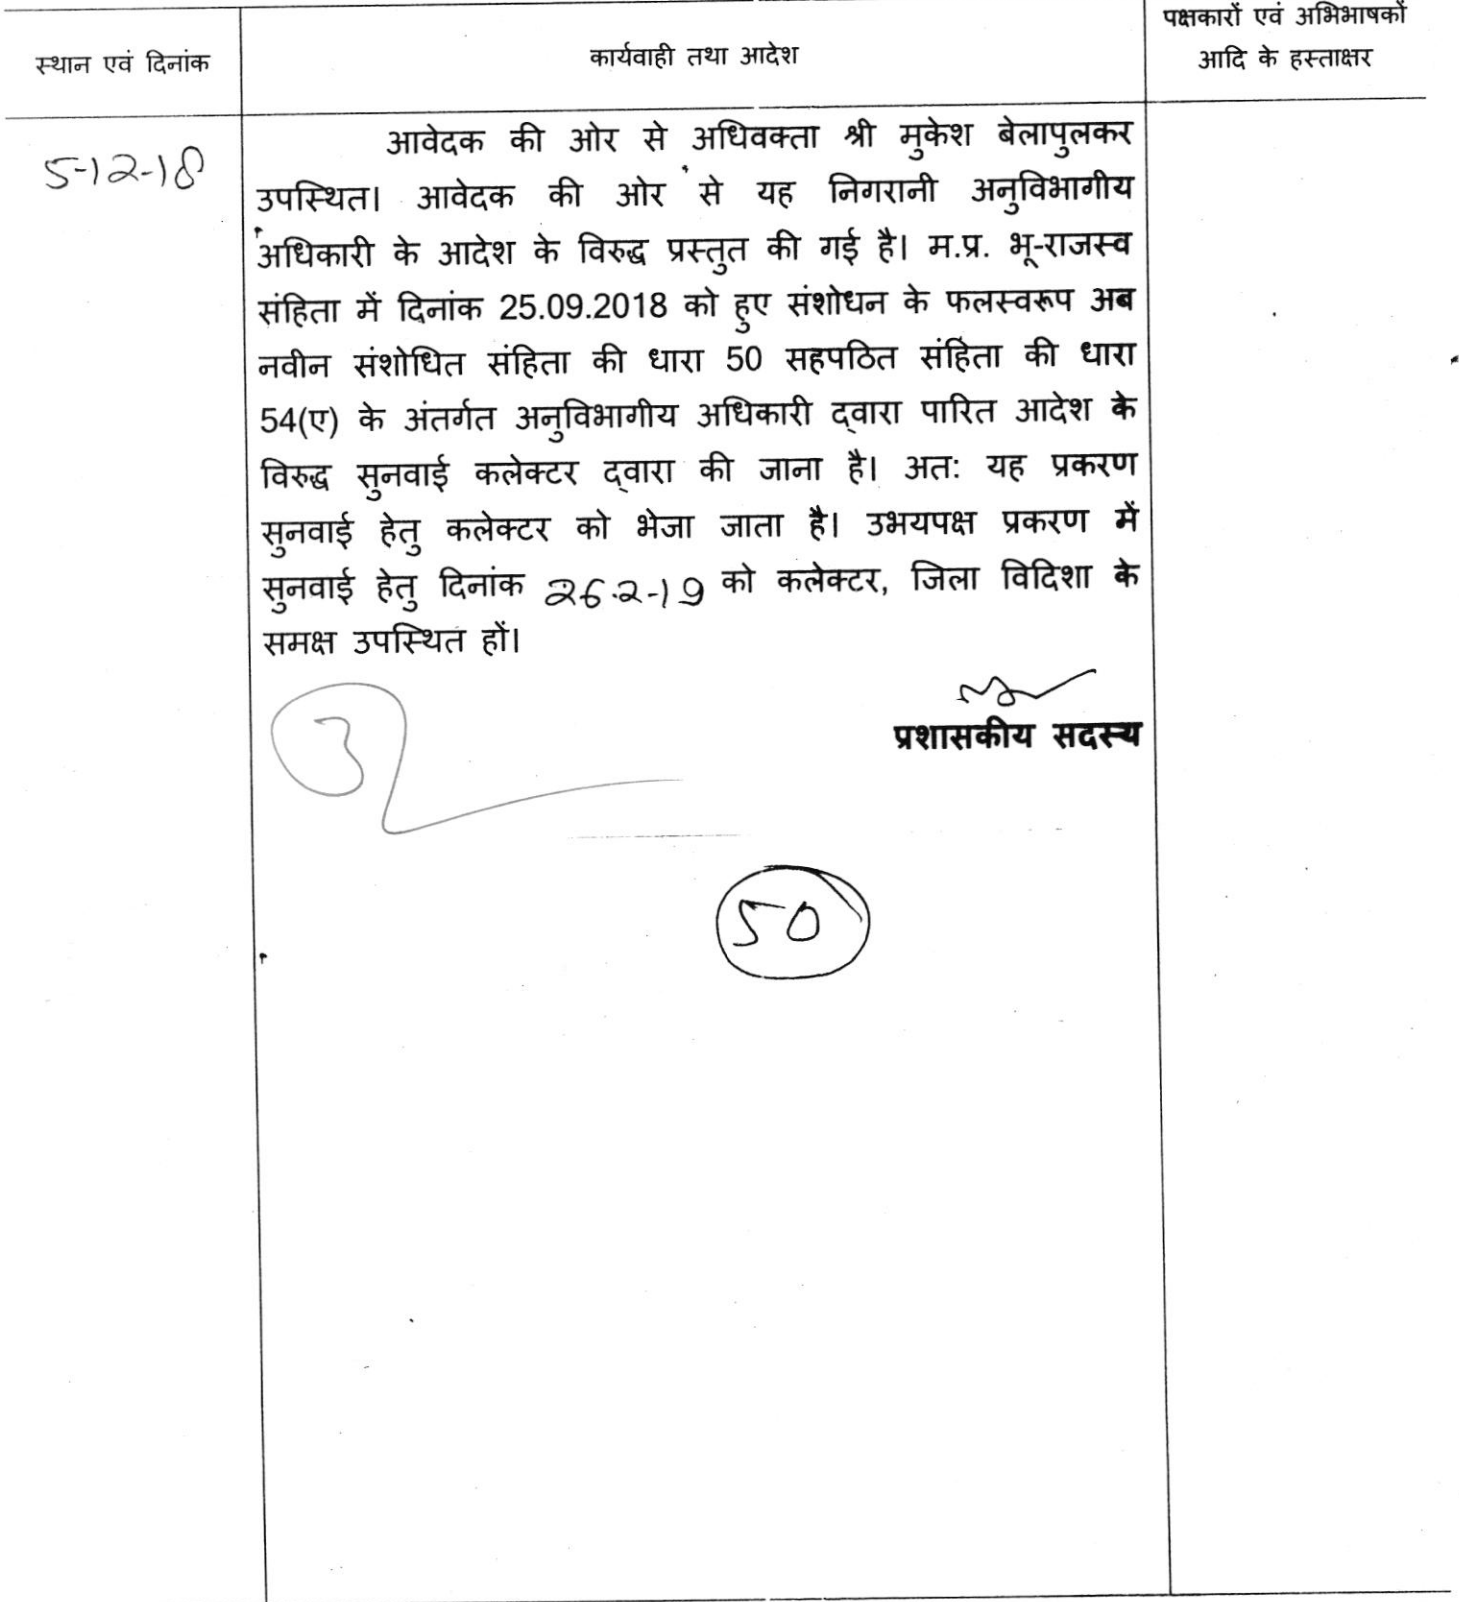 स्थान एवं दिनांक
कार्यवाही तथा आदेश
पक्षकारों एवं अभिभाषकों
आदि के हस्ताक्षर
5-12-18
आवेदक की ओर से अधिवक्ता श्री मुकेश बेलापुलकर
उपस्थित। आवेदक की ओर से यह निगरानी अनुविभागीय
अधिकारी के आदेश के विरुद्ध प्रस्तुत की गई है। म.प्र. भू-राजस्व
संहिता में दिनांक 25.09.2018 को हुए संशोधन के फलस्वरूप अब
नवीन संशोधित संहिता की धारा 50 सहपठित संहिता की धारा
54(ए) के अंतर्गत अनुविभागीय अधिकारी द्वारा पारित आदेश के
विरुद्ध सुनवाई कलेक्टर द्वारा की जाना है। अतः यह प्रकरण
सुनवाई हेतु कलेक्टर को भेजा जाता है। उभयपक्ष प्रकरण में
सुनवाई हेतु दिनांक 26.2-19 को कलेक्टर, जिला विदिशा के
समक्ष उपस्थित हों।
प्रशासकीय सदस्य
50